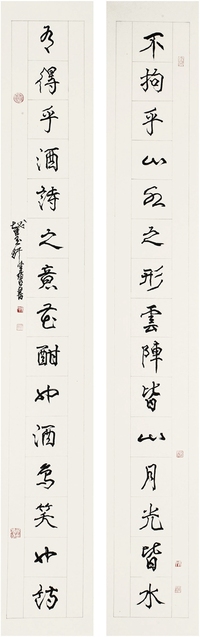 不拘乎山水之形雲陣皆山月光皆水
有得乎酒詩之意花酣也酒鳥笑也詩